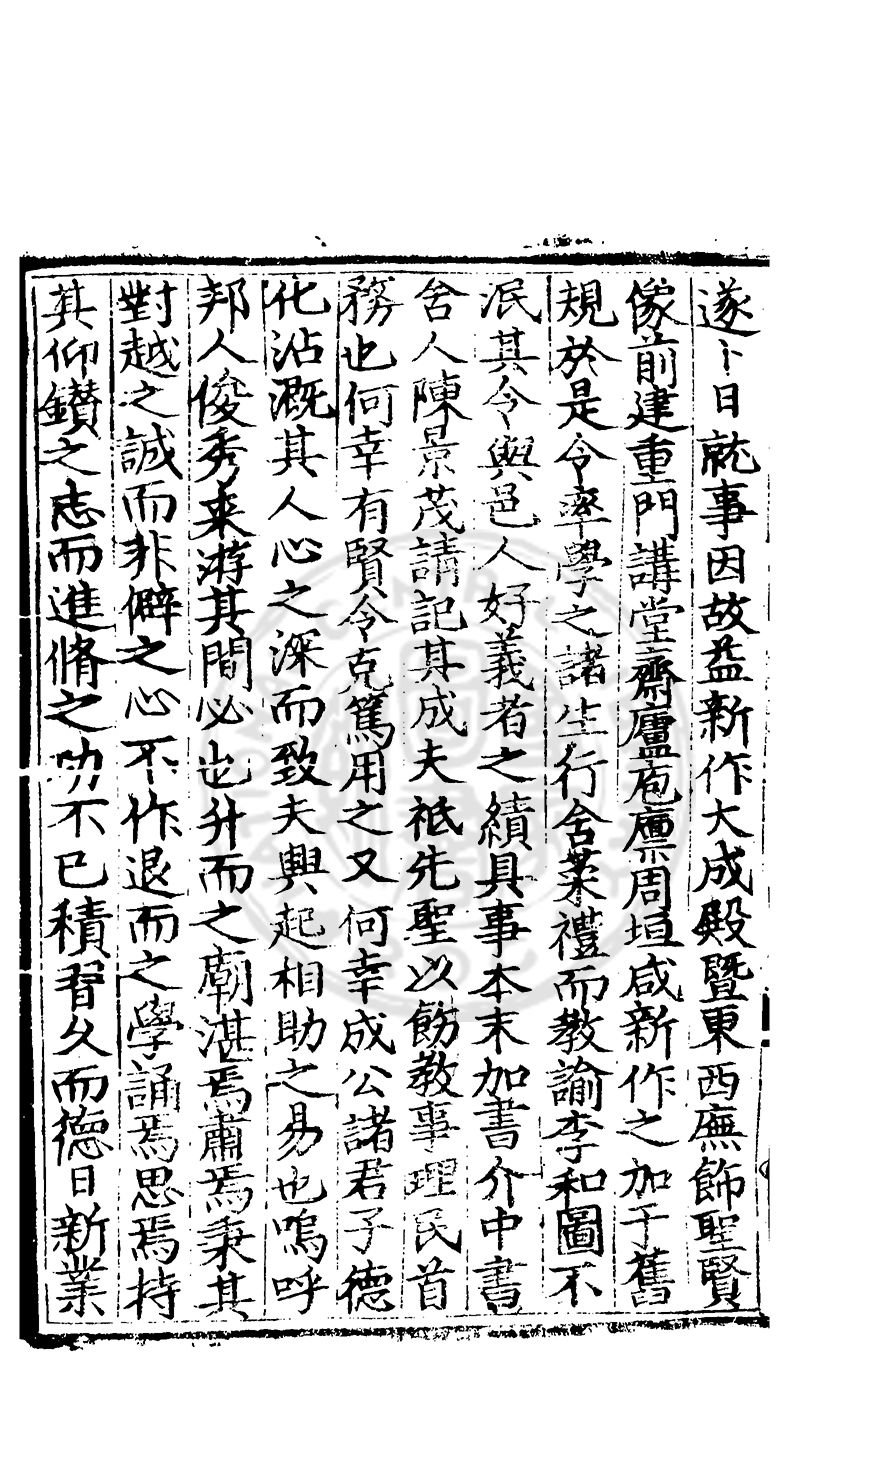 遂卜日就事因故益新作大成殿暨東西廡飾聖賢
像前建重門講堂齋廬庖廩周垣咸新作之加于舊
規於是令率學之諸生行舍菜禮而教諭李和圖不
泯其令與邑人好義者之績具事本末加書介中書
舍人陳景茂請記其成夫祗先聖以飭教事理民首
務也何幸有賢令克篤用之又何幸成公諸君子德
化沾溉其人心之深而致夫興起相助之易也嗚呼
邦人俊秀来游其間必也升而之廟湛焉肅焉秉其
對越之誠而非僻之心不作退而之學誦焉思焉持
其仰鑚之志而進脩之功不已積習久而德日新業